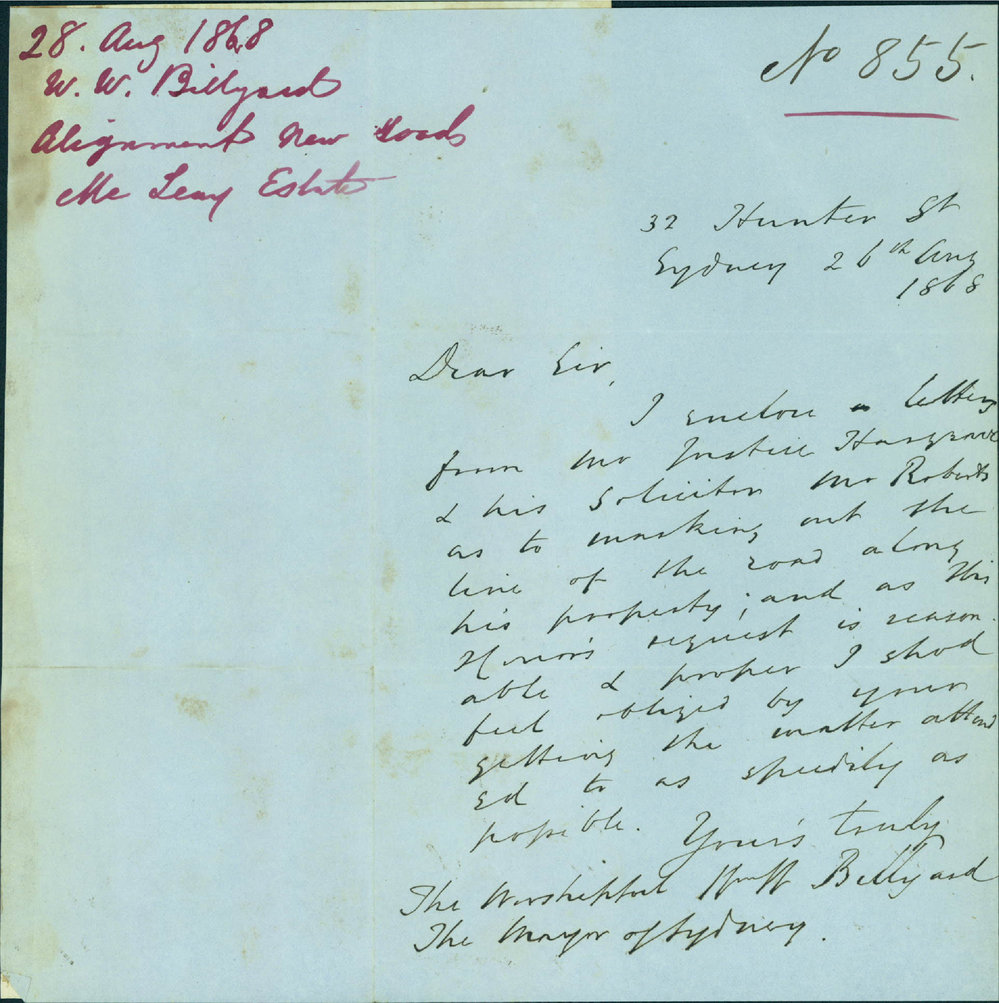 28. Aug 1868
W. W. Billyard
Alignment New Roads
Mc Leay Estate
No 855.
32 Hunter St
Sydney 26th Aug
1868
Dear Sir,
I enclose a letter
from Mr Justice Hargrave
& his Solicitor Mr Roberts
as to marking out the
line of the road along
his property; and as His
Honor's request is reason
able & proper I shod
feel obliged by your
getting the matter attend
ed to as speedily as
possible.
Yours truly
W W Billyard
The Worshipful
The Mayor of Sydney.